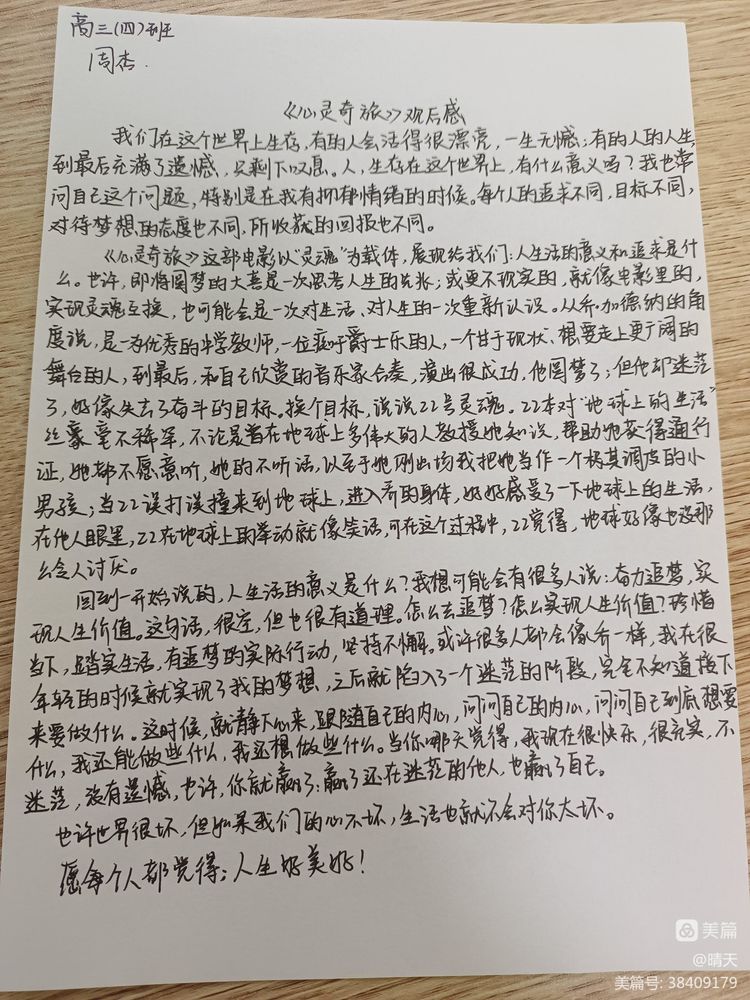 高三(四)班
周杏.
《心灵奇旅》观后感
我们在这个世界上生存,有的人会活得很漂亮,一生无憾;有的人的人生,
到最后充满了遗憾,只剩下叹息。人,生存在这个世界上,有什么意义吗?我也常
问自己这个问题,特别是在我有抑郁情绪的时候。每个人的追求不同,目标不同,
对待梦想的态度也不同,所收获的回报也不同。
《心灵奇旅》这部电影以“灵魂”为载体,展现给我们:人生活的意义和追求是什
么。也许,即将圆梦的大喜是一次思考人生的先兆;或更不现实的,就像电影里的,
实现灵魂互换,也可能会是一次对生活、对人生的一次重新认识。从乔·加德纳的角
度说,是一为优秀的中学教师,一位痴乎爵士乐的人,一个甘于现状、想要走上更广阔的
舞台的人,到最后,和自己欣赏的音乐家合奏,演出很成功,他圆梦了;但他却迷茫
了,好像失去了奋斗的目标。换个目标,说说22号灵魂。22本对“地球上的生活”
丝豪毫不稀罕,不论是曾在地球上多伟大的人教授她知识,帮助她获得通行
证,她都不愿意听,她的不听话,以至于她刚出场我把她当作一个极其调皮的小
男孩;当22误打误撞来到地球上,进入乔的身体,好好感受了一下地球上的生活,
在他人眼里,22在地球上的举动就像笑话,可在这个过程中,22觉得,地球好像也没那
么令人讨厌。
回到一开始说的,人生活的意义是什么?我想可能会有很多人说:奋力追梦,实
现人生价值。这句话,很空,但也很有道理。怎么去追梦?怎么实现人生价值?珍惜
当下,踏实生活,有追梦的实际行动,坚持不懈。或许很多人都会像乔一样,我在很
年轻的时候就实现了我的梦想,之后就陷入了一个迷茫的阶段,完全不知道接下
来要做什么。这时候,就静下心来,跟随自己的内心,问问自己的内心,问问自己到底想要
什么,我还能做些什么,我还想做些什么。当你哪天觉得,我现在很快乐,很充实,不
迷茫,没有遗憾,也许,你就赢了:赢了还在迷茫的他人,也赢了自己。
也许世界很坏,但如果我们的心不坏,生活也就不会对你太坏。
愿每个人都觉得:人生好美好!
美篇
@晴天
美篇号: 38409179